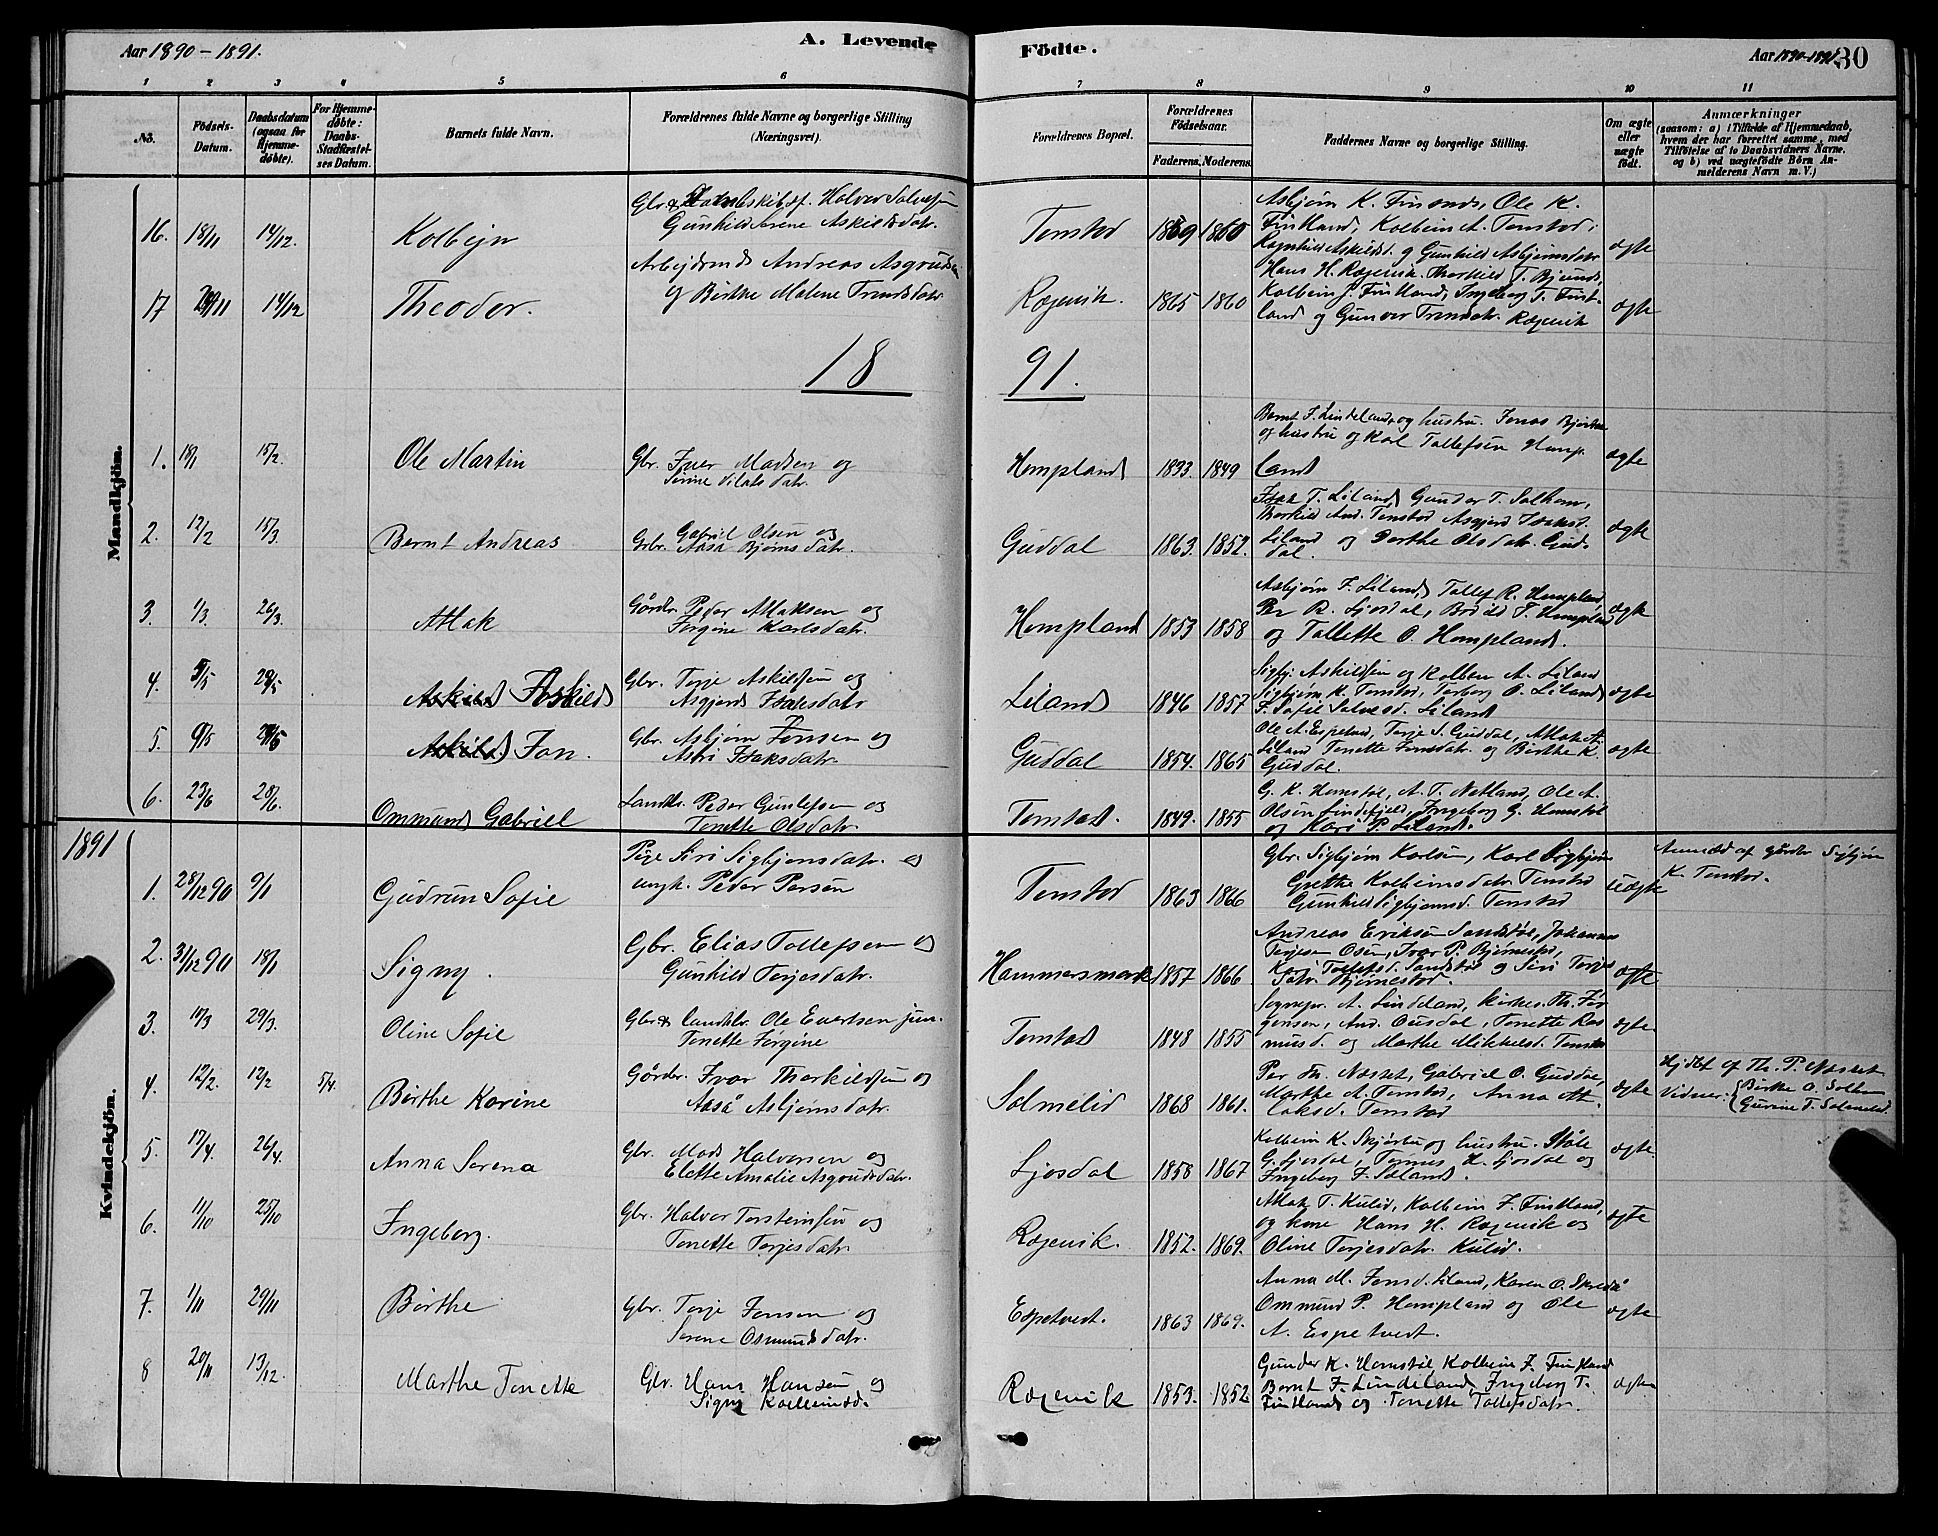 Aar 1890 - 1891.
A. Levende
Födte.
Aar 1890-1891
30
1 2 3 4 5 6 7 8 9 10 11
No.
Födsels-Datum.
Daabsdatum (ogsaa for Hjemme-döbte).
For Hjemme-döbte: Daabs-Stadfæstelses Datum.
Barnets fulde Navn.
Forældrenes fulde Navne og borgerlige Stilling (Næringsvei).
Forældrenes Bopæl.
Forældrenes Födselsaar.
Faderens. Moderens.
Faddernes Navne og borgerlige Stilling.
Om ægte eller uægte födt.
Anmærkninger
(saasom: a) i Tilfælde af Hjemmedaab,
hvem der har forrettet samme, med
Tilföielse af to Daabsvidners Navne,
og b) ved uægtefödte Börn An-
melderens Navn m. V.)
Mandkjön.
16. 18/11 14/12. Kolbejn
Halvor Salvesen
Gunhild Serene Askildsdatr.
Tonstad 1859 1860
Asbjørn K. Finsnes, Ole K.
Fintland, Kolbein A. Tonstad,
Ragnhild Askildsd. og Gunhild Asbjørnsdatr
ægte
17 24/11 14/12 Theodor.
Arbejdsmd Andreas Asgrudsen
og Birthe Malene Trondsdatr
Røgevik. 1865 1860
Hans H. Røgevik. Thorkild T. Bjeunes,
Kolbein J. Fintland, Ingeborg T. Fint-
land og Gunvor Trondsdatr. Røgevik
ægte
18 91.
1. 18/1 15/2. Ole Martin
Gbr. Iver Madsen og
Serine Silatsdatr.
Hompland 1833 1849
Bernt F. Lindeland og hustru. Jonas Bjørkn
og hustru og Karl Tollefsen Homp
land
ægte
2. 12/2 15/3. Bernt Andreas
Gbr. Gabriel Olsen og
Aasa Bjørnsdatr.
Guddal 1863. 1852.
Isak T. Liland, Gunder T. Salhom,
Thorkild And. Tonstad Asgjerd Isaksd.
Liland og Dorthe Olsdatr. Gud-
dal.
ægte
3. 1/3. 26/3. Atlak
Gårdbr. Peder Atlaksen og
Jørgine Karlsdatr.
Hompland 1853 1858
Asbjørn F. Liland, Tollef R. Hompland,
Per R. Ljosdal, Bodild T. Hompland
og Tollette O. Hompland.
ægte
4. 5/5 28/5 Askild Torkild
Gbr. Terje Askildsen og
Asgjerd Isaksdatr
Liland 1846 1857
Sigbj. Askildsen og Kolben A. Liland
Sigbjørn K. Tonstad, Torborg O. Liland
T. Sofie Salvesd. Liland
ægte
5. 9/5 28/5 Askild Jon.
Gbr. Asbjørn Jonsen og
Astri Isaksdatr.
Guddal 1854. 1865
Ole A. Espeland, Terje S. Guddal, Atlak A.
Liland Tonette Jonsdatr. og Birthe K.
Guddal.
ægte
6. 23/6 28/6. Ommund Gabriel
Landh. Peder Gunlefsen og
Tonette Olsdatr.
Tonstad. 1849. 1855
G. K. Homstøl, A. T. Netland, Ole A.
Olsen Lindefjeld, Ingeborg G. Homstøl
og Kari P. Liland.
1891
Kvindekjön.
1. 28/12 90 9/1 Gudrun Sofie
Pige Siri Sigbjørnsdatr. og
ungk. Peder Persen
Tonstad 1863 1866
Gbr. Sigbjørn Karlsen, Karl Sigbjørn
Grethe Kolbeinsdatr. Tonstad
Gunhild Sigbjørnsd. Tonstad
uægte
Anmeld af gårdbr Sigbjørn
K. Tonstad.
2. 31/12 90 18/1 Signy.
Gbr. Elias Tollefsen og
Gunhild Terjesdatr.
Hammersmark 1857 1866
Andreas Eriksen Sandstøl, Johannes
Terjesen Osen, Ivar P. Bjørnestad,
Kari Tollefsd. Sandstøl og Siri Terjes
datr. Bjørnestad.
ægte
3. 11/3 29/3. Oline Sofie
Gbr & landhdlr. Ole Evertsen jun.
Tonette Jørgine
Tonstad 1848 1855
Sognepr. A. Lindeland, Kirkes. Th. Jør
gensen, And. Ousdal, Tonette Ras
musd. og Marthe Mikkelsd. Tonstad
ægte
4. 12/2. 12/2 5/4. Birthe Karine
Gårdbr. Ivar Thorkildsen og
Aasa Asbjørnsdatr.
Solmelid 1868 1861.
Per Th. Næsset, Gabriel O. Guddal,
Marthe A. Tonstad, Anna At-
laksd. Tonstad
ægte
Hj. dbt af Th. P. Næsset
Vidner: Birthe O. Solhom
Gurine T. Solmelid.
5. 17/4. 26/4. Anna Serena
Gbr. Mads Halvorsen og
Elette Amalie Asgrudsdatr.
Ljosdal 1858 1867
Kolbein K. Skjerbu og hustru. Ståle
G. Ljosdal, Tønnes H. Ljosdal og
Ingeborg F. Soland.
ægte
6. 11/10 25/10 Ingeborg.
Gbr. Halvor Torsteinsen og
Tonette Terjesdatr.
Røgevik. 1852. 1869.
Atlak T. Kulid, Kolbein J. Fintland,
og kone Hans H. Røgevik og
Oline Terjesdatr. Kulid.
ægte
7. 1/11 29/11 Birthe
Gbr. Terje Jonsen og
Serene Osmundsdatr.
Espetvedt. 1863 1869.
Anna M. Jonsd. Liland, Karen O. Skredå
Ommund P. Hompland og Ole
A. Espetvedt.
ægte
8 20/11 13/12. Marthe Tonette
Gbr. Hans Hansen og
Signy Kolbeinsd.
Røgevik 1853. 1852
Gunder K. Homstøl, Kolbein J. Fintland
Bernt F. Lindeland, Ingeborg T.
Fintland og Tonette Tollefsdatr.
ægte